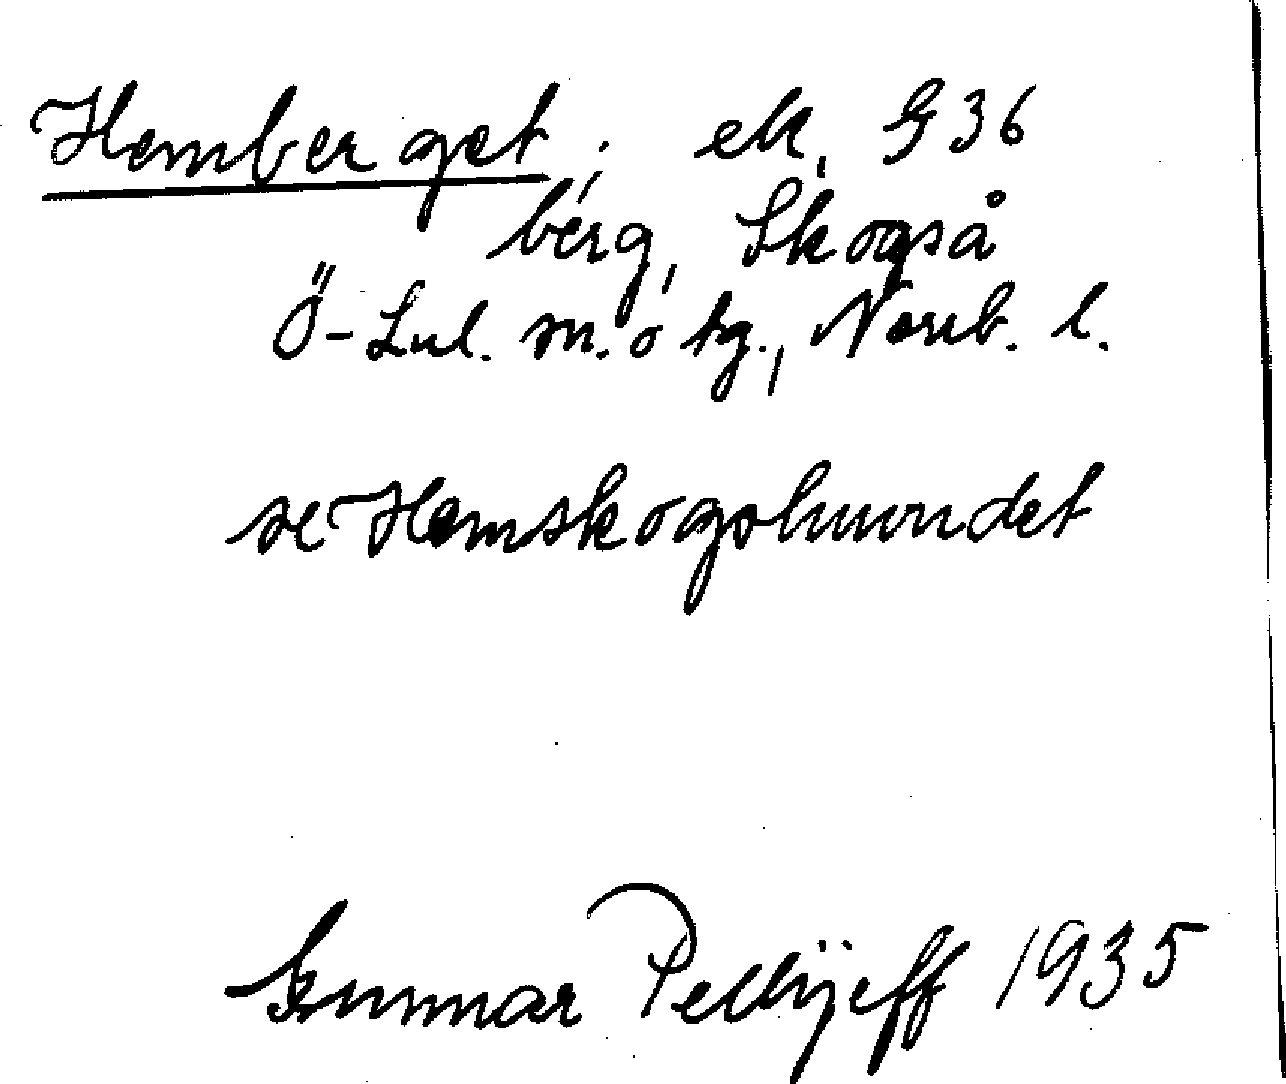 Hemberget; ek. G 36
berg, Skogså
Ö-Lul. sn. o tg., Norrb. l.
se Hemskogshuvudet
Gunnar Pellijeff 1935